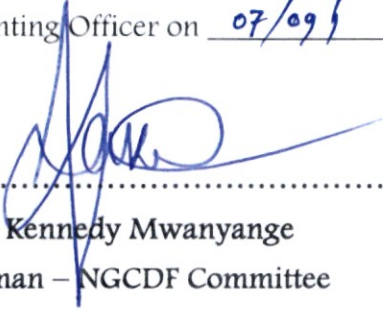 nting Officer on 07/09/
Kennedy Mwanyange
nan – NGCDF Committee